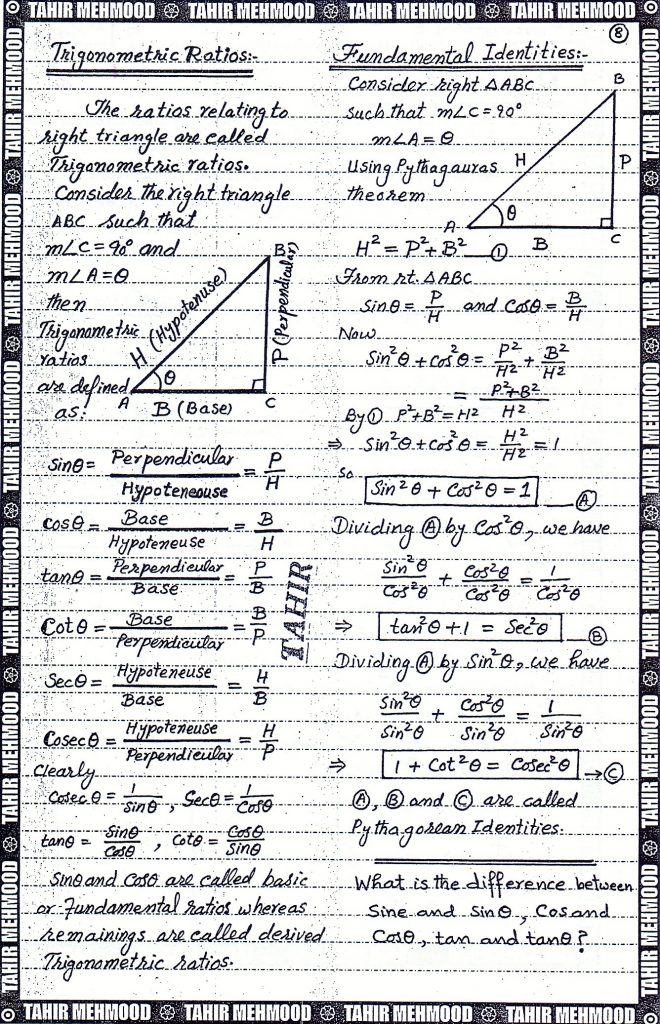 TAHIR MEHMOOD TAHIR MEHMOOD TAHIR MEHMOOD TAHIR MEHMOOD
8
Trigonometric Ratios:-
The ratios relating to
right triangle are called
Trigonometric ratios.
Consider the right triangle
ABC such that
m∠C=90° and
m∠A=θ
then
Trigonometric
ratios
are defined
as:
B
H (Hypotenuse)
P (Perpendicular)
θ
A B (Base) C
Sinθ = Perpendicular/Hypoteneouse = P/H
Cosθ = Base/Hypoteneuse = B/H
tanθ = Perpendicular/Base = P/B
Cotθ = Base/Perpendicular = B/P
Secθ = Hypoteneuse/Base = H/B
Cosecθ = Hypoteneuse/Perpendicular = H/P
Clearly
Cosecθ = 1/Sinθ , Secθ = 1/Cosθ
tanθ = Sinθ/Cosθ , Cotθ = Cosθ/Sinθ
Sinθ and Cosθ are called basic
or Fundamental ratios whereas
remainings are called derived
Trigonometric ratios.
TAHIR
Fundamental Identities:-
Consider right △ABC
such that m∠C=90°
m∠A=θ
Using Pythagauras
theorem
B
H
P
θ
A B C
H² = P²+B² __①
From rt. △ABC
Sinθ = P/H and Cosθ = B/H
Now
Sin²θ + Cos²θ = P²/H² + B²/H²
= P²+B²/H²
By① P²+B²=H²
⇒ Sin²θ + Cos²θ = H²/H² = 1
So
Sin²θ + Cos²θ = 1 __Ⓐ
Dividing Ⓐ by Cos²θ, we have
Sin²θ/Cos²θ + Cos²θ/Cos²θ = 1/Cos²θ
⇒ tan²θ + 1 = Sec²θ __Ⓑ
Dividing Ⓐ by Sin²θ, we have
Sin²θ/Sin²θ + Cos²θ/Sin²θ = 1/Sin²θ
⇒ 1 + Cot²θ = Cosec²θ →Ⓒ
Ⓐ, Ⓑ and Ⓒ are called
Pythagorean Identities.
What is the difference between
Sine and Sinθ, Cos and
Cosθ, tan and tanθ?
TAHIR MEHMOOD TAHIR MEHMOOD TAHIR MEHMOOD TAHIR MEHMOOD
TAHIR MEHMOOD TAHIR MEHMOOD TAHIR MEHMOOD TAHIR MEHMOOD TAHIR MEHMOOD TAHIR MEHMOOD
TAHIR MEHMOOD TAHIR MEHMOOD TAHIR MEHMOOD TAHIR MEHMOOD TAHIR MEHMOOD TAHIR MEHMOOD